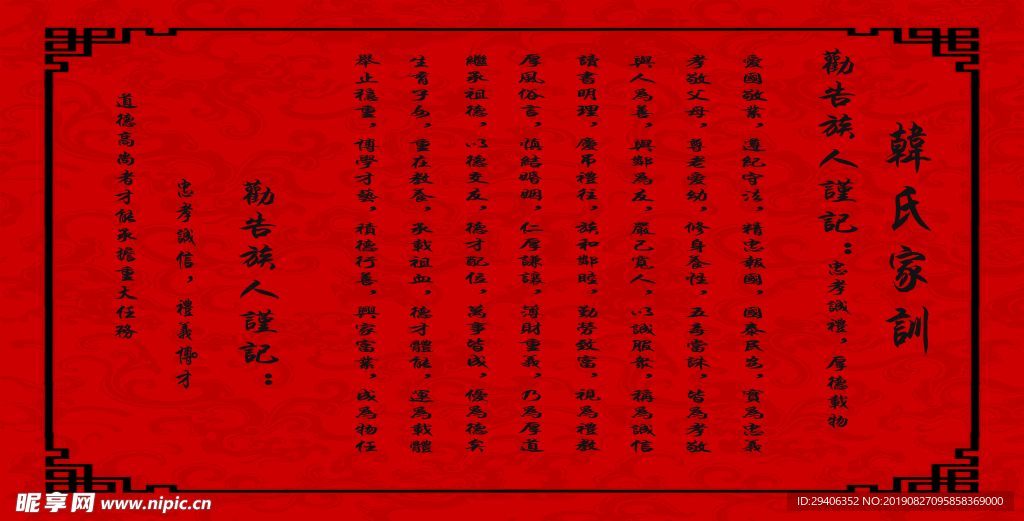 韓氏家訓
勸告族人謹記：忠孝誠禮，厚德載物
愛國敬業，遵紀守法，精忠報國，國泰民安，實為忠義
孝敬父母，尊老愛幼，修身養性，五毒當除，皆為孝敬
與人為善，與鄰為友，嚴己寬人，以誠服眾，稱為誠信
讀書明理，慶吊禮往，族和鄰睦，勤勞致富，視為禮教
厚風俗言，慎結婚姻，仁厚謙讓，薄財重義，乃為厚道
繼承祖德，以德交友，德才配位，萬事皆成，優為德矣
生育子女，重在教養，承載祖血，德才體能，運為載體
舉止穩重，博學才藝，積德行善，興家富業，成為物任
勸告族人謹記：
忠孝誠信，禮義博才
道德高尚者才能承擔重大任務
昵享网 www.nipic.cn
ID:29406352 NO:20190827095858369000